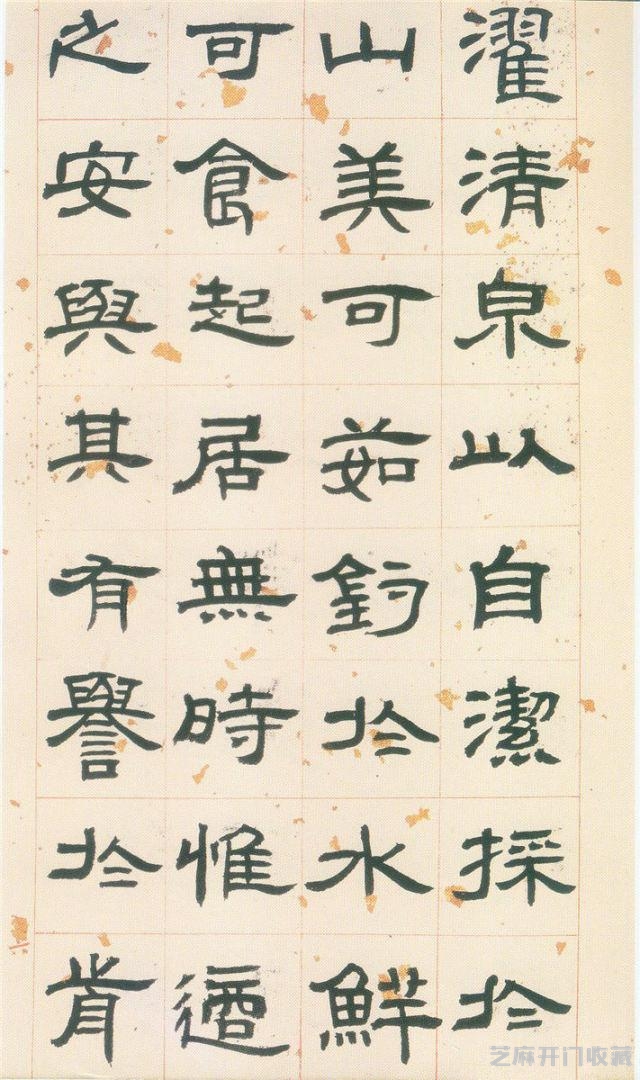 濯清泉以自潔採於
山美可茹釣於水鮮
可食起居無時惟適
之安與其有譽於前
芝麻开门收藏